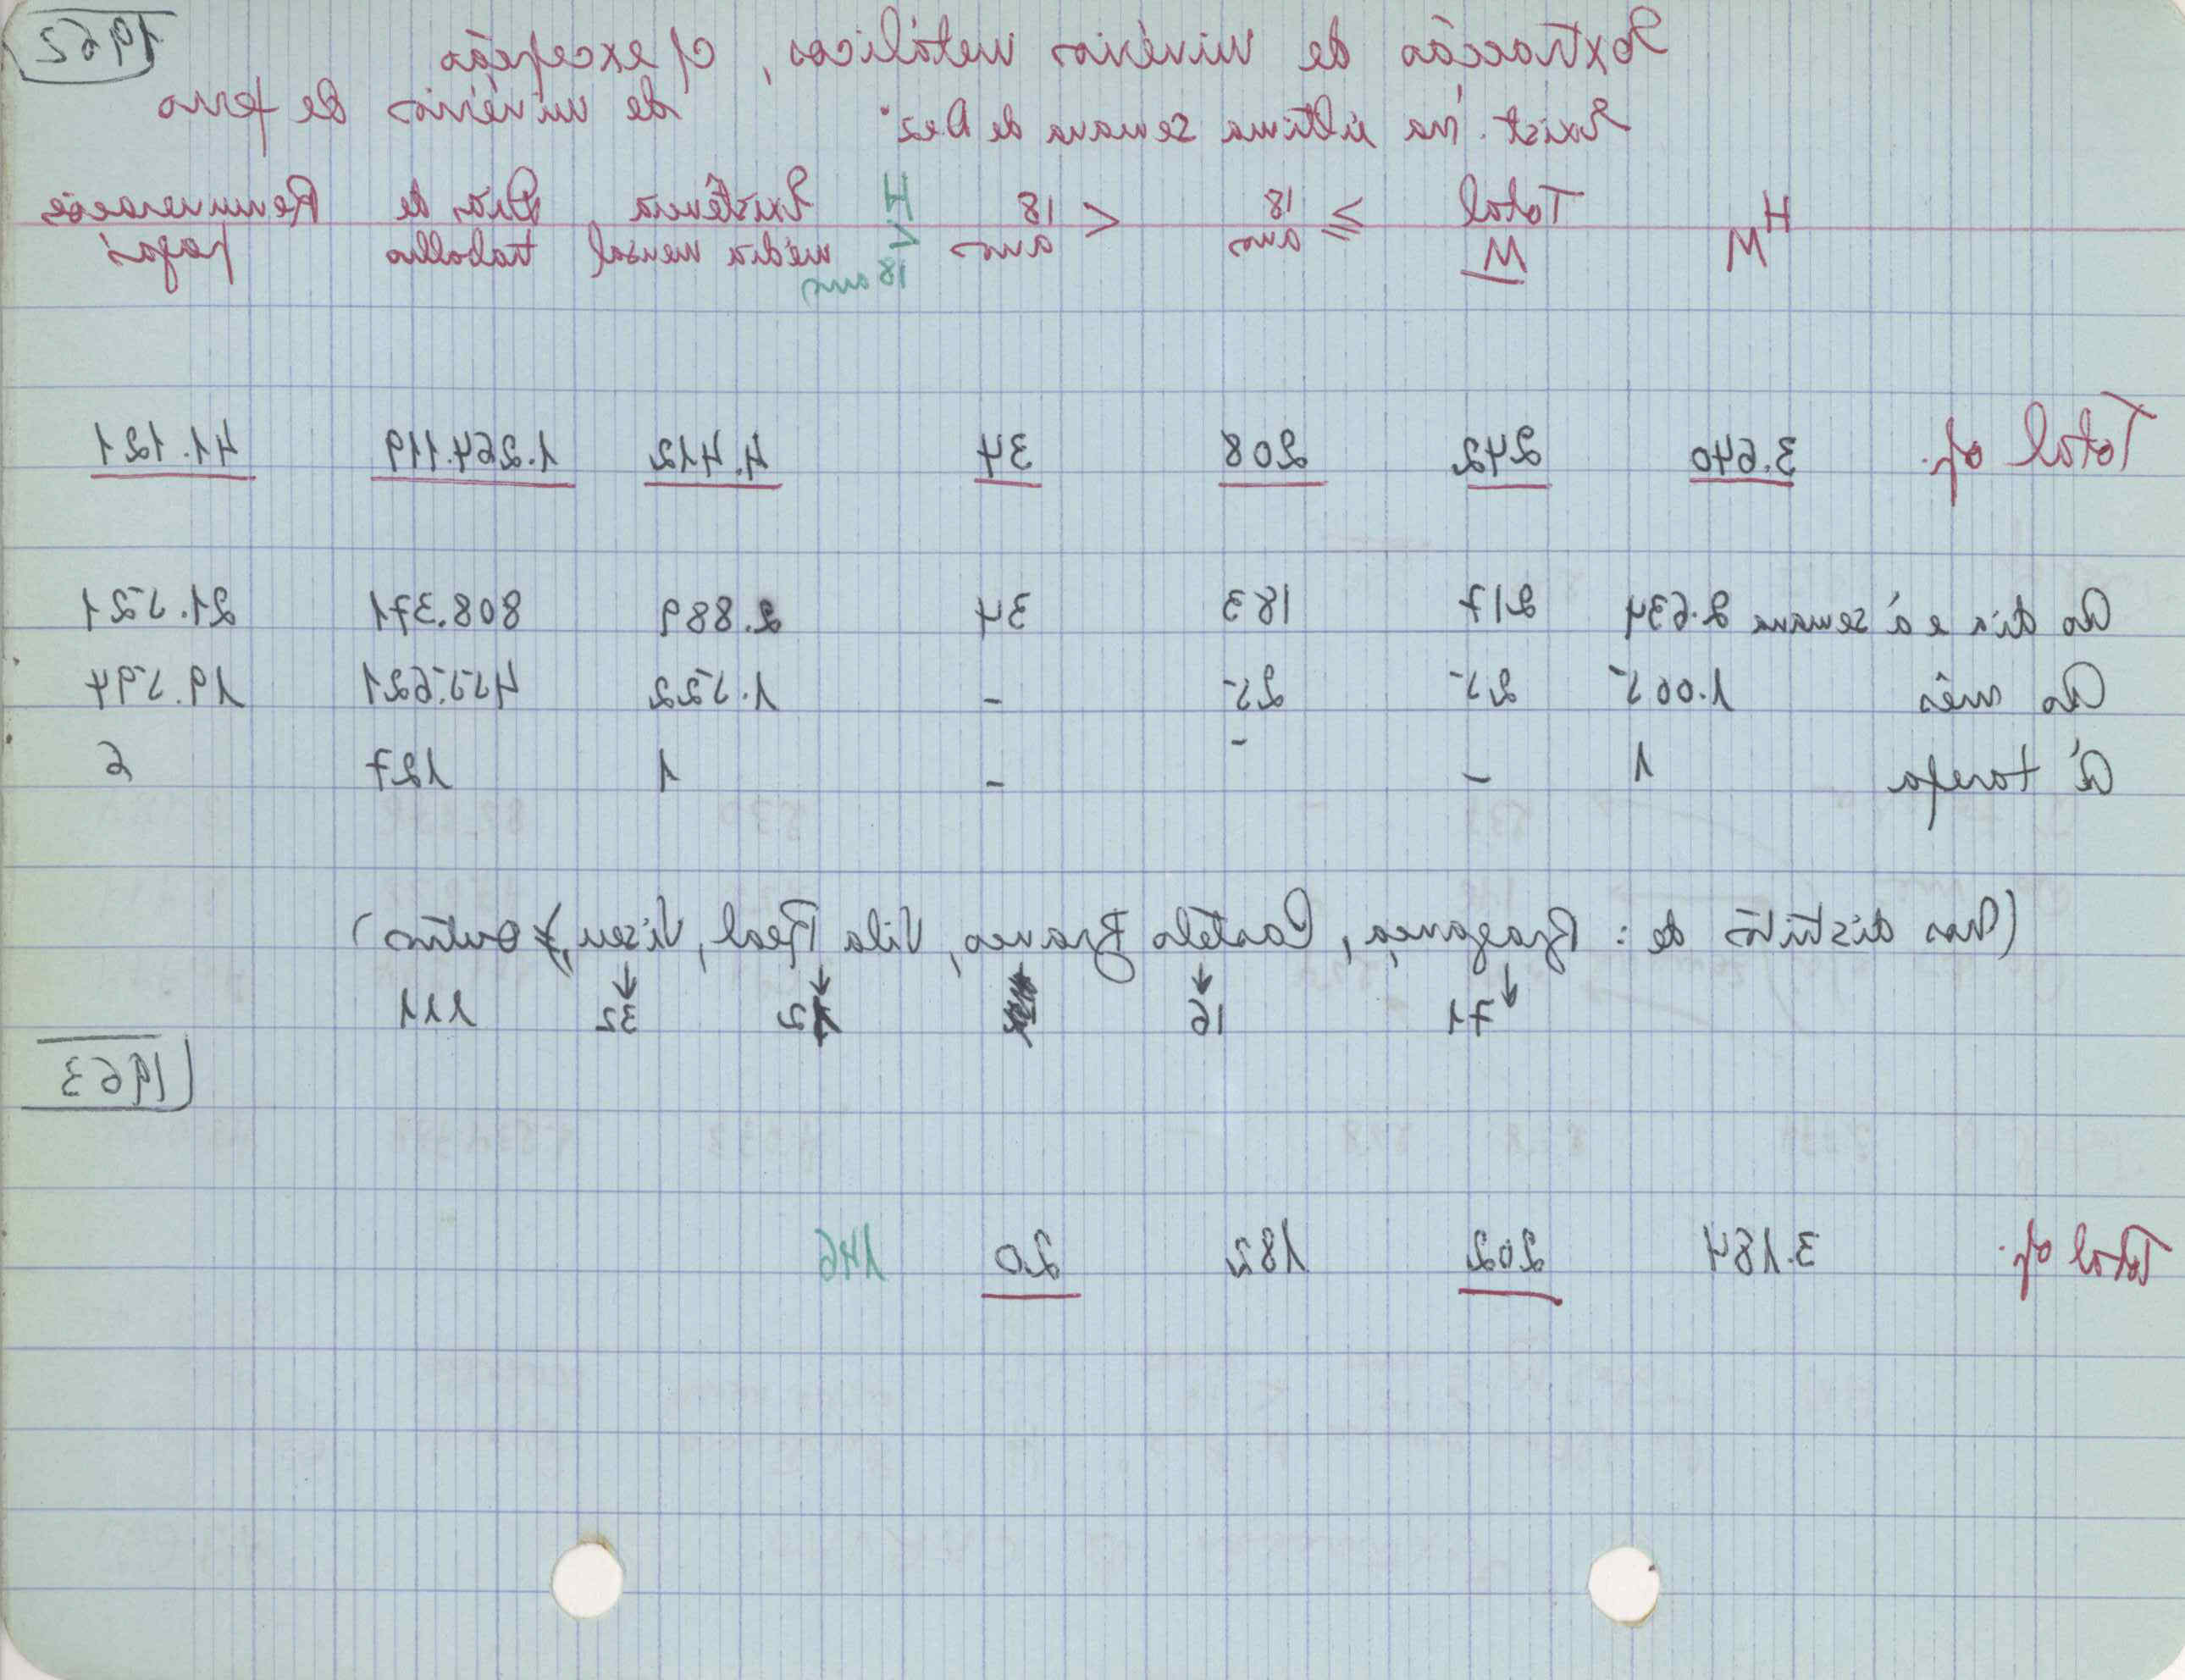 Extracção de minérios metálicos, c/ excepção 1962
de minérios de ferro
Exist. na última semana de Dez.
HM Total M ≥ 18 anos < 18 anos H < 18 anos Existência média mensal Dias de trabalho Remunerações pagas
Total op. 3.640 242 208 34 4.412 1.264.119 41.121
Ao dia e à semana 2.634 217 183 34 2.889 808.371 21.521
Ao mês 1.005 25 25 - 1.522 455.621 19.594
À tarefa 1 - - - 1 127 6
(Nos distritos de: Bragança, Castelo Branco, Vila Real, Viseu, Outros)
↓ 71 ↓ 16 ↓ 12 ↓ 32 111
1963
Total op. 3.184 202 182 20 146